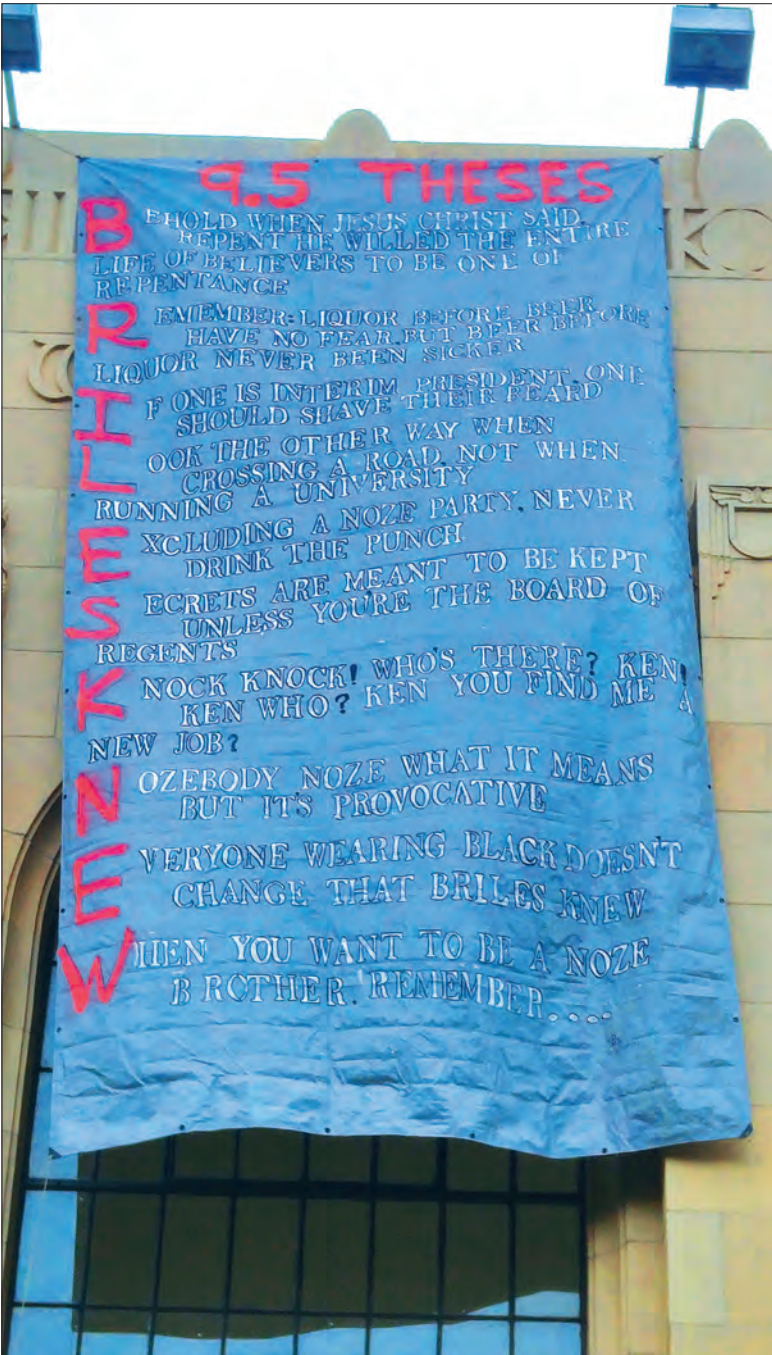 9.5 THESES
BEHOLD WHEN JESUS CHRIST SAID
REPENT HE WILLED THE ENTIRE
LIFE OF BELIEVERS TO BE ONE OF
REPENTANCE
REMEMBER: LIQUOR BEFORE BEER
HAVE NO FEAR. BUT BEER BEFORE
LIQUOR NEVER BEEN SICKER
IF ONE IS INTERIM PRESIDENT, ONE
SHOULD SHAVE THEIR BEARD
LOOK THE OTHER WAY WHEN
CROSSING A ROAD, NOT WHEN
RUNNING A UNIVERSITY
EXCLUDING A NOZE PARTY, NEVER
DRINK THE PUNCH
SECRETS ARE MEANT TO BE KEPT
UNLESS YOU'RE THE BOARD OF
REGENTS
KNOCK KNOCK! WHO'S THERE? KEN!
KEN WHO? KEN YOU FIND ME A
NEW JOB?
NOZEBODY NOZE WHAT IT MEANS
BUT IT'S PROVOCATIVE
EVERYONE WEARING BLACK DOESN'T
CHANGE THAT BRILES KNEW
WHEN YOU WANT TO BE A NOZE
BROTHER, REMEMBER....